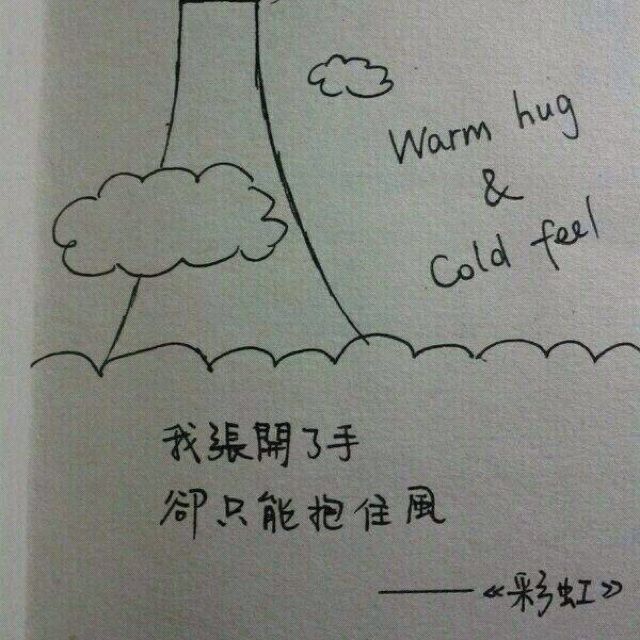 Warm hug
&
Cold feel
我張開了手
卻只能抱住風
——《彩虹》